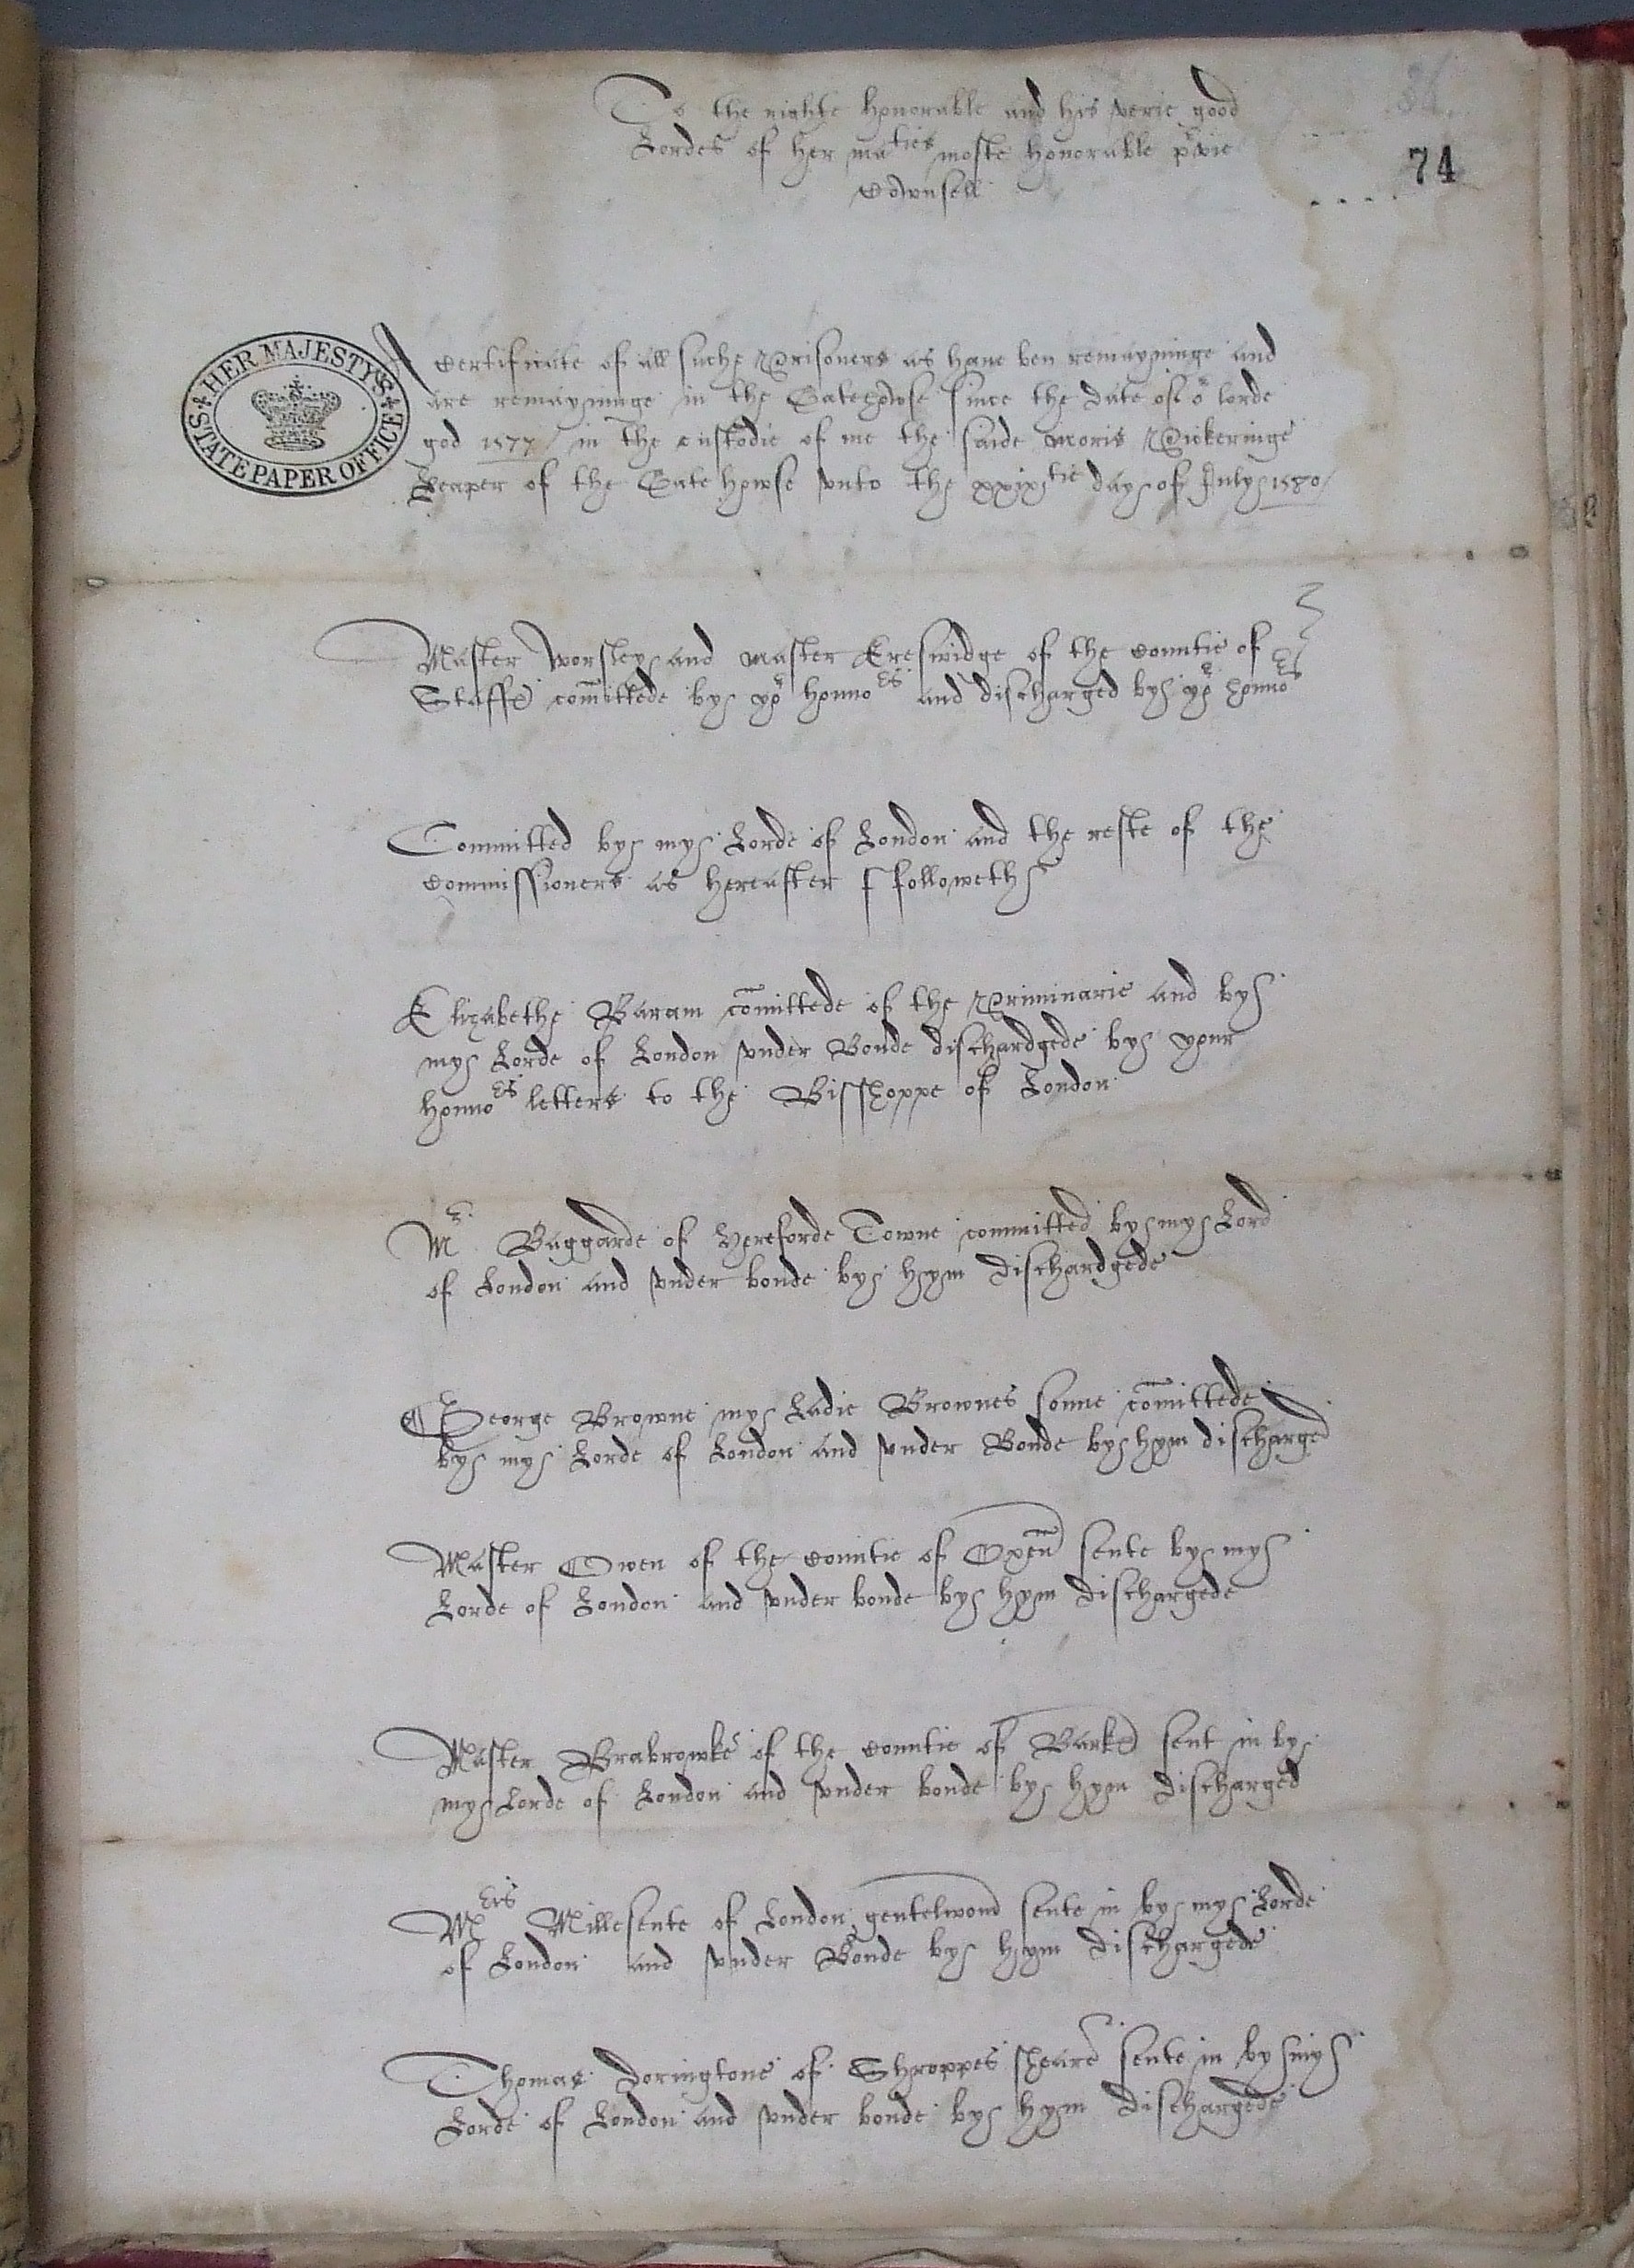 To the righte honorable and his verie good
Lordes of her maties moste honorable pvie
Cownsell
74
HER MAJESTY'S
STATE PAPER OFFICE
A certificate of all suche Prisoners as have ben remayninge and
are remayninge in the Gatehowse since the date of or lorde
god 1577 / in the custodie of me the saide Moris Pickeringe
Keaper of the Gate howse vnto the xxixtie day of July 1580 /
Master Worsley and Master Ereswidge of the countie of
Staff comittede by yor honnors and discharged by yor honnors
Committed by my Lorde of London and the reste of the
Commissioners as hereafter ffolloweth
Elizabethe Baram comittede of the Priminarie and by
my Lorde of London vnder Bonde dischardgede by your
honnors letters to the Bisshoppe of London
Mr Baggarde of Hereforde Towne committed by my Lord
of London and vnder bonde by hym dischardgede
George Browne my Ladie Brownes sonne comittede
by my Lorde of London and vnder Bonde by hym discharged
Master Owen of the countie of Oxen sente by my
Lorde of London and vnder bonde by hym dischargede
Master Brabrowke of the countie of Bark sent in by
my Lorde of London and vnder bonde by hym discharged
Mrs Millesente of London gentelwom sente in by my Lorde
of London and vnder Bonde by hym dischargede
Thomas Doringtone of Shroppes sheare sente in by my
Lorde of London and vnder bonde by hym dischargede